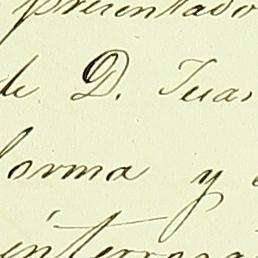 presentado
de D. Juan
forma y
interroga